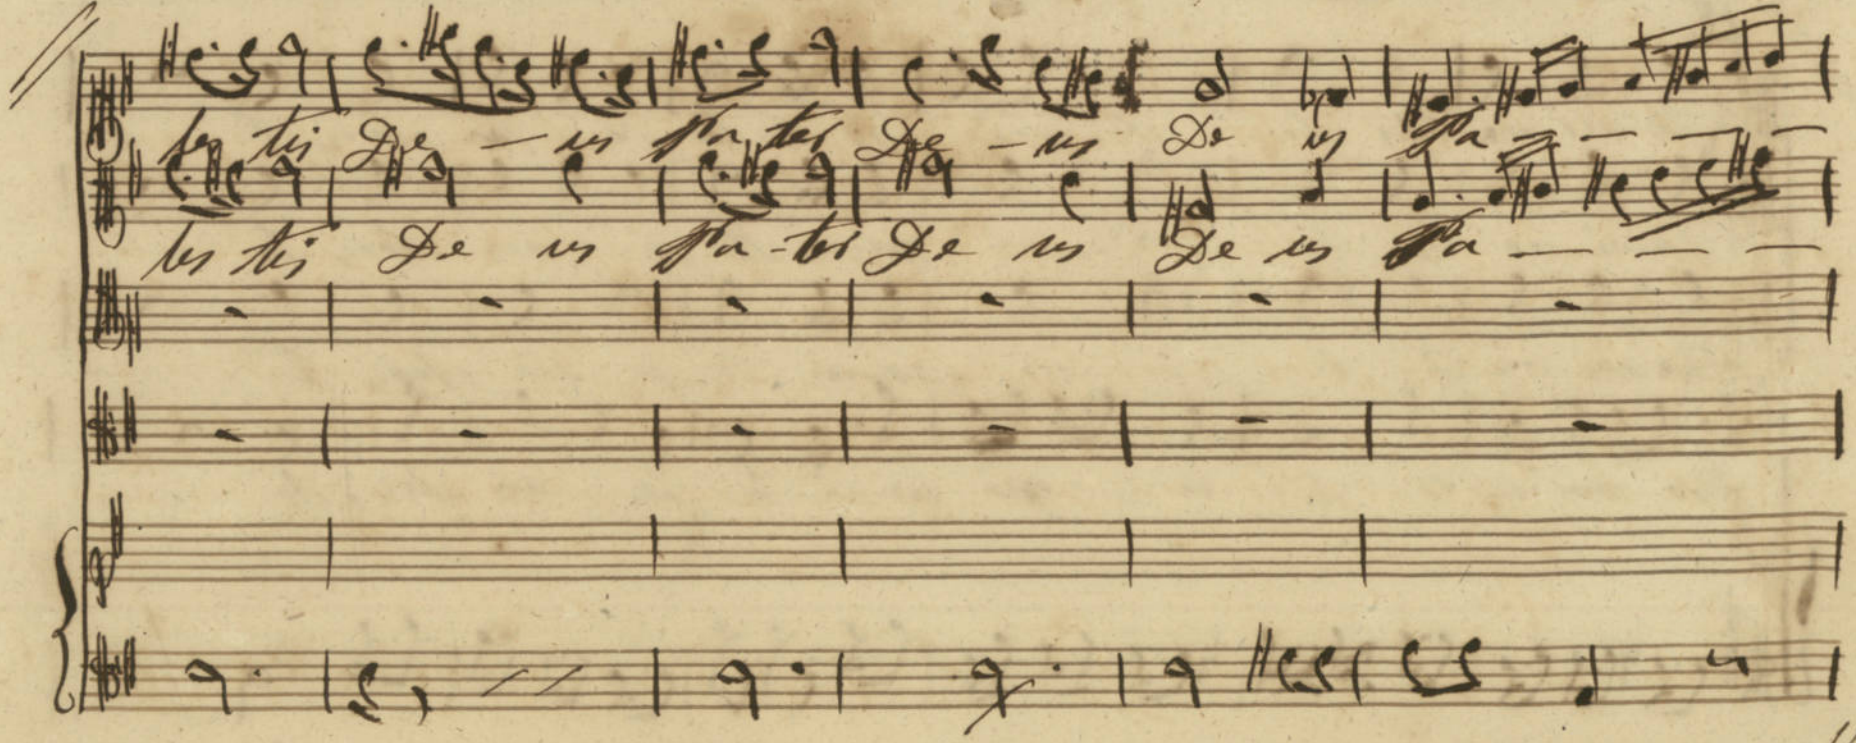 les tis De - us Pa ter De - us De us Pa — — —
les tis De us Pa - ter De us De us Pa — — —